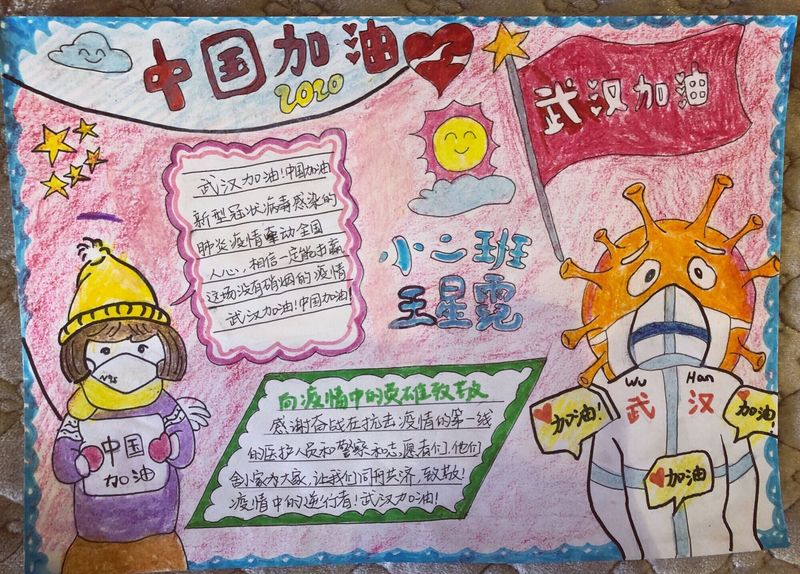 中国加油
2020
武汉加油
武汉加油!中国加油
新型冠状病毒感染的
肺炎疫情牵动全国
人心,相信一定能打赢
这场没有硝烟的疫情
武汉加油!中国加油!
小二班
王星霓
向疫情中的英雄致敬
感谢奋战在抗击疫情的第一线
的医护人员和警察和志愿者们,他们
舍小家为大家,让我们同舟共济,致敬!
疫情中的逆行者!武汉加油!
N95
中国
加油
Wu Han
武 汉
加油!
加油!
加油